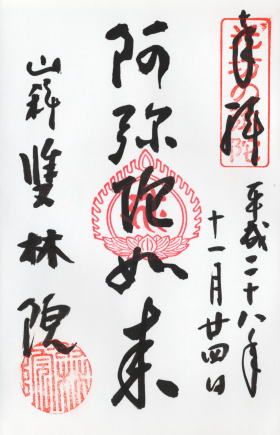 奉拝
平成二十八年
十一月廿四日
阿弥陀如来
山科
雙林院